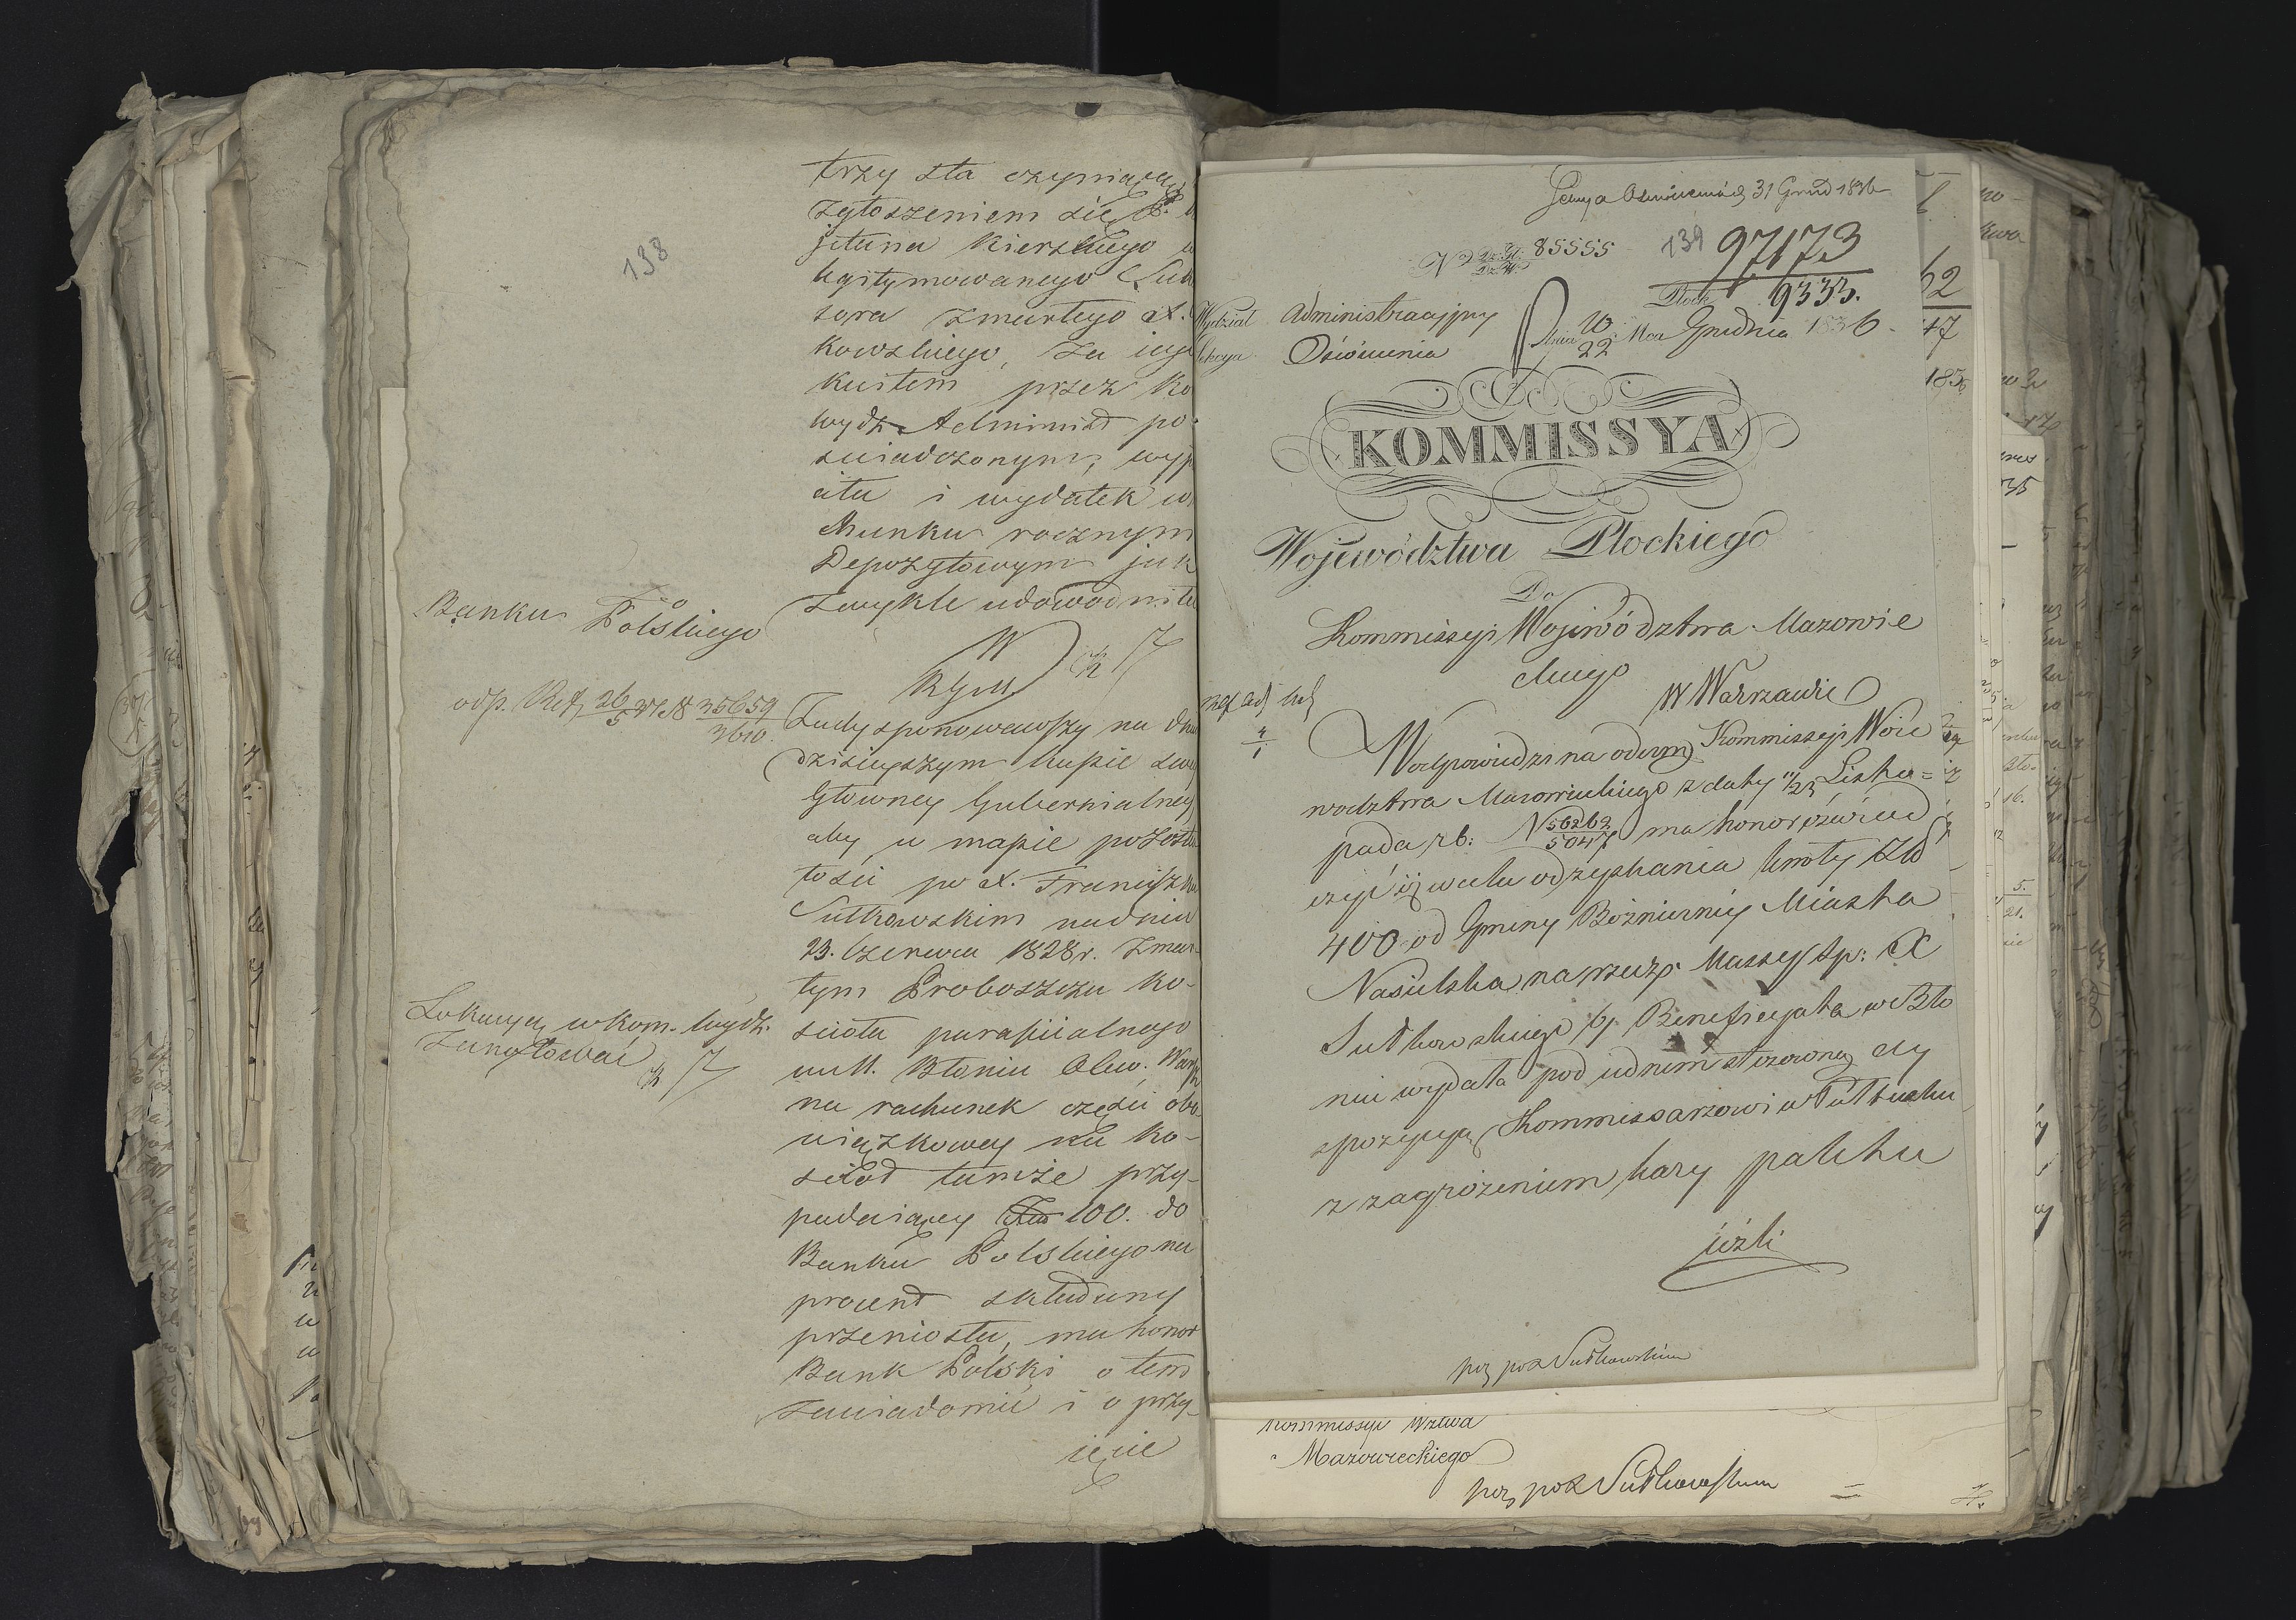 138
trzy sta czyniącą
zgłoszeniem się
jetana Kierskiego
legitymowanego Suk
sora zmarłego X.
kowskiego, za jego
kwitem przez Ko
wydz. Administ po
świadczonym, wyp
ata i wydatek w
chunku rocznym
Depozytowym jak
zwykle udowodniła
Do
Banku Polskiego
odp. Ref. 26/5 37 N 35659/3610
Zadysponowawszy na dniu
dzisiejszym kassie swej
głowney Gubernialney
aby w massie pozosta
łości po X. Franciszku
Sutkowskim na dniu
23. Czerwca 1828 r. zmar-
tym Proboszczu ko-
ścioła parafiialnego
w M. Błoniu Obw. Warsz
na rachunek części obo-
wiązkowey na ko-
ściół tamże przy-
padaiącey 100. do
Banku Polskiego na
procent składany
przeniosła, ma honor
Bank Polski o tem
zawiadomić i o przy-
ięcie
Lokacyą w Kom. Wydz.
zanotować
31 Grud 1836
N 85555
139
97173
9333.
Wydział Administracyjny
Sekcya Oświecenia
Płock
dnia 10/22 Mca Grudnia 1836
KOMMISSYA
Województwa Płockiego
Do
Kommissyi Województwa Mazowie
ckiego
w Warszawie
W odpowiedzi na odezwę Kommissyi Woie
wodztwa Mazowieckiego z daty 11/23 Listo=
pada r b: N 56262/5047 ma honor oświad
czyć iż w celu odzyskania kwoty Złp
400 od Gminy Bożniczney Miasta
Nasielska na rzecz Massy śp: X
Sutkowskiego b. Beneficyata w Bło
niu wydała pod iednem stosowną dy
spozycyą Kommissarzowi w Pułtusku
z zagrożeniem kary paktu
ieżli
poz po X Sutkowskim
Kommissyi Wztwa
Mazowieckiego
poz po X Sutkowskim